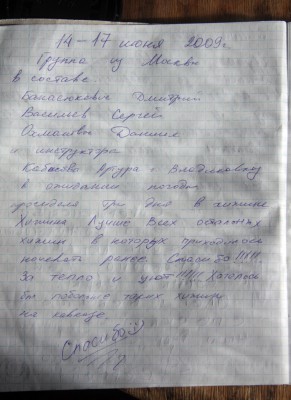 14-17 июня 2009г
Группа из Москвы
в составе
Банасюкович Дмитрий
Васильев Сергей
Даниил
и инструктора
Артура г. Владикавказ
в ожидании погоды
просидела три дня в хижине
Хижина лучше всех остальных
хижин в которых приходилось
ночевать ранее. Спасибо!!!!!
За тепло и уют!!!!!! Хотелось
бы побольше таких хижин
на кавказе.
Спасибо!